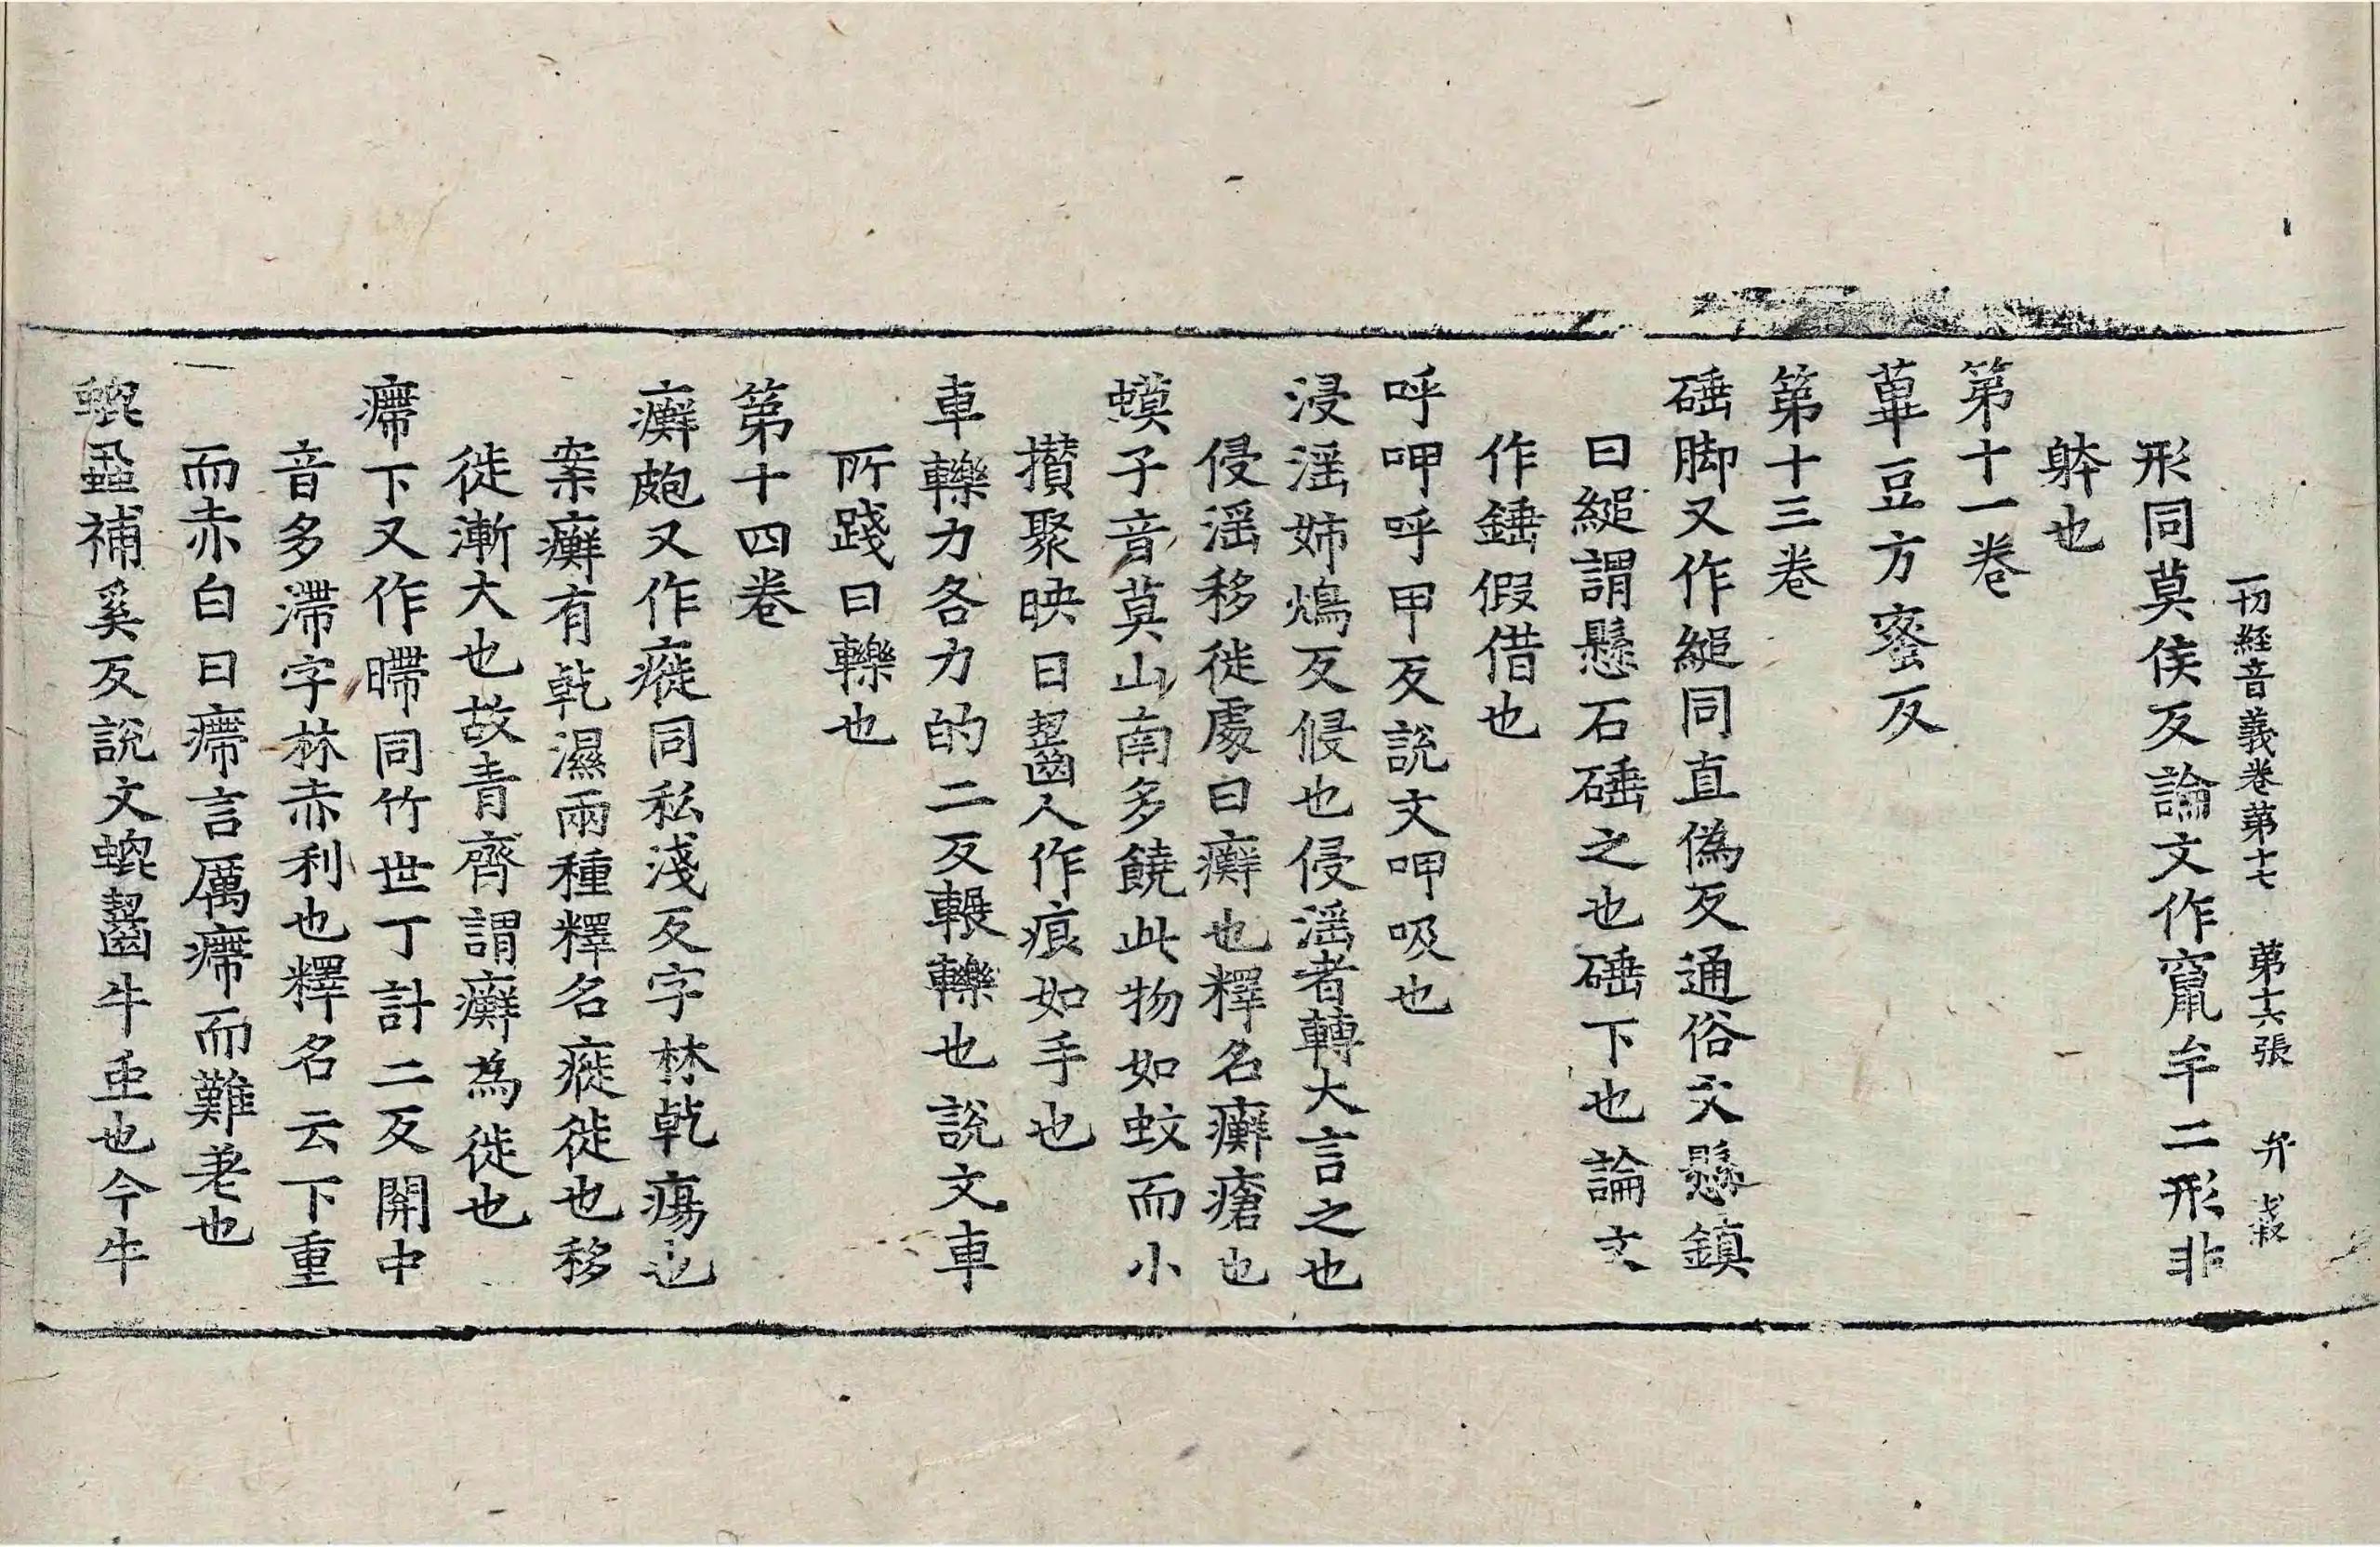 一切經音義卷第十七 第十六張 弁
形同莫侯反論文作竄牟二形非
躰也
第十一卷
蓽豆方蜜反
第十三卷
硾脚又作縋同直偽反通俗文懸鎮
曰縋謂懸石硾之也硾下也論文
作錘假借也
呼呷呼甲反說文呷吸也
浸淫姉鴆反侵也侵淫者轉大言之也
侵淫移徙處曰癬也釋名癬瘡也
蟆子音莫山南多饒此物如蚊而小
攢聚映日齧人作痕如手也
車轢力各力的二反輾轢也說文車
所踐曰轢也
第十四卷
癬皰又作㿅同私淺反字林乾瘍也
案癬有乾濕兩種釋名㿅徙也移
徙漸大也故青齊謂癬為徙也
㿃下又作䐭同竹世丁計二反關中
音多滯字林赤利也釋名云下重
而赤白曰㿃言厲㿃而難差也
蜫蝨補奚反說文蜫齧牛虫也今牛